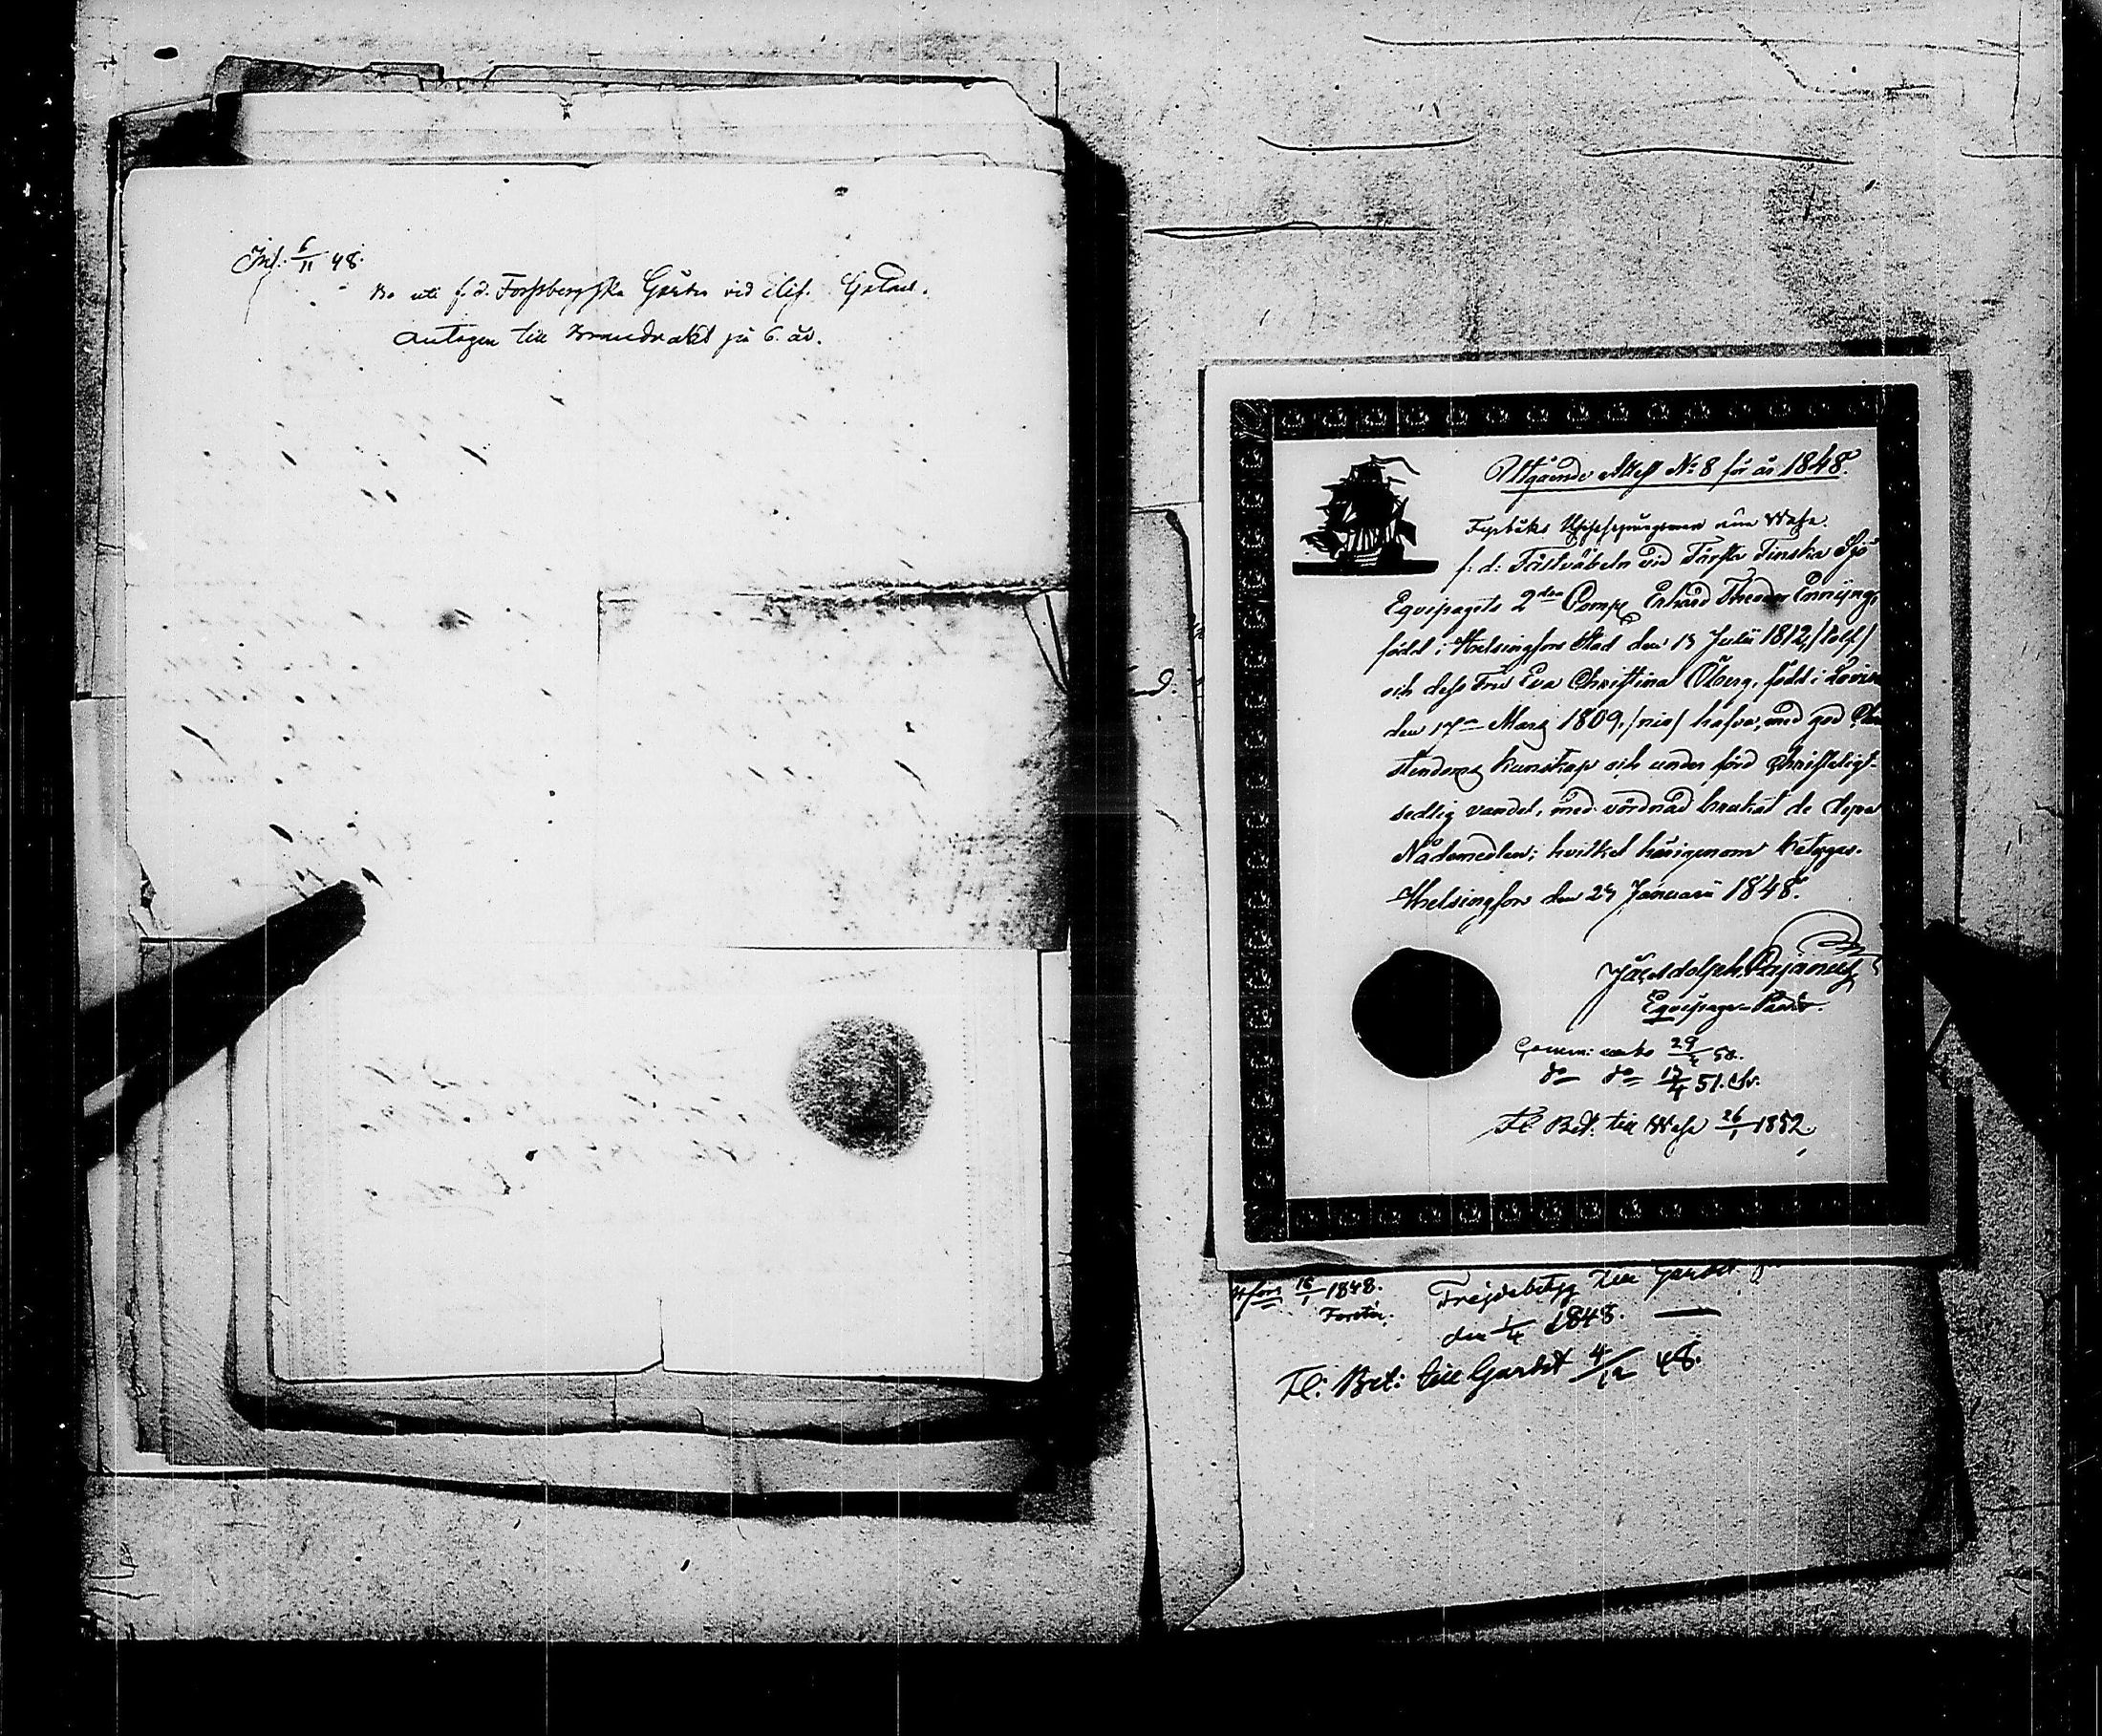 Inl. 6/11 48.
Bo uti f. d. Forssbergska Gården vid Elis. Gatan.
Antagen till Brandvakt på 6. år.
Utgående Attest No 8 för år 1848.
från Wasa.
f. d. Fältväbeln vid Första Finska Sjö
Equipagets 2dra Comp. Erhard Theodor
född i Helsingfors Stad den 13 Julii 1812, /tolf/
och dess Fru Eva Christina Öberg, född i Lovisa
den 17de Mars 1809, /nio/ hafva, med god Chri
stendoms kunskap och under förd Christeligt-
sedlig vandel, med vördnad brukat de dyra
Nådemedlen; hvilket härigenom betygas.
Helsingfors den 29 Januarii 1848.
Equipage-Pastor.
Comm: 29/ 50.
do do 51.
Fl. Bet. till Wasa 26/1 1852.
H:fors 18/1 1848.
Frejdebetyg till Gardet
den 1/4 1848.
Fl: Bet: till Gardet 4/12 48.